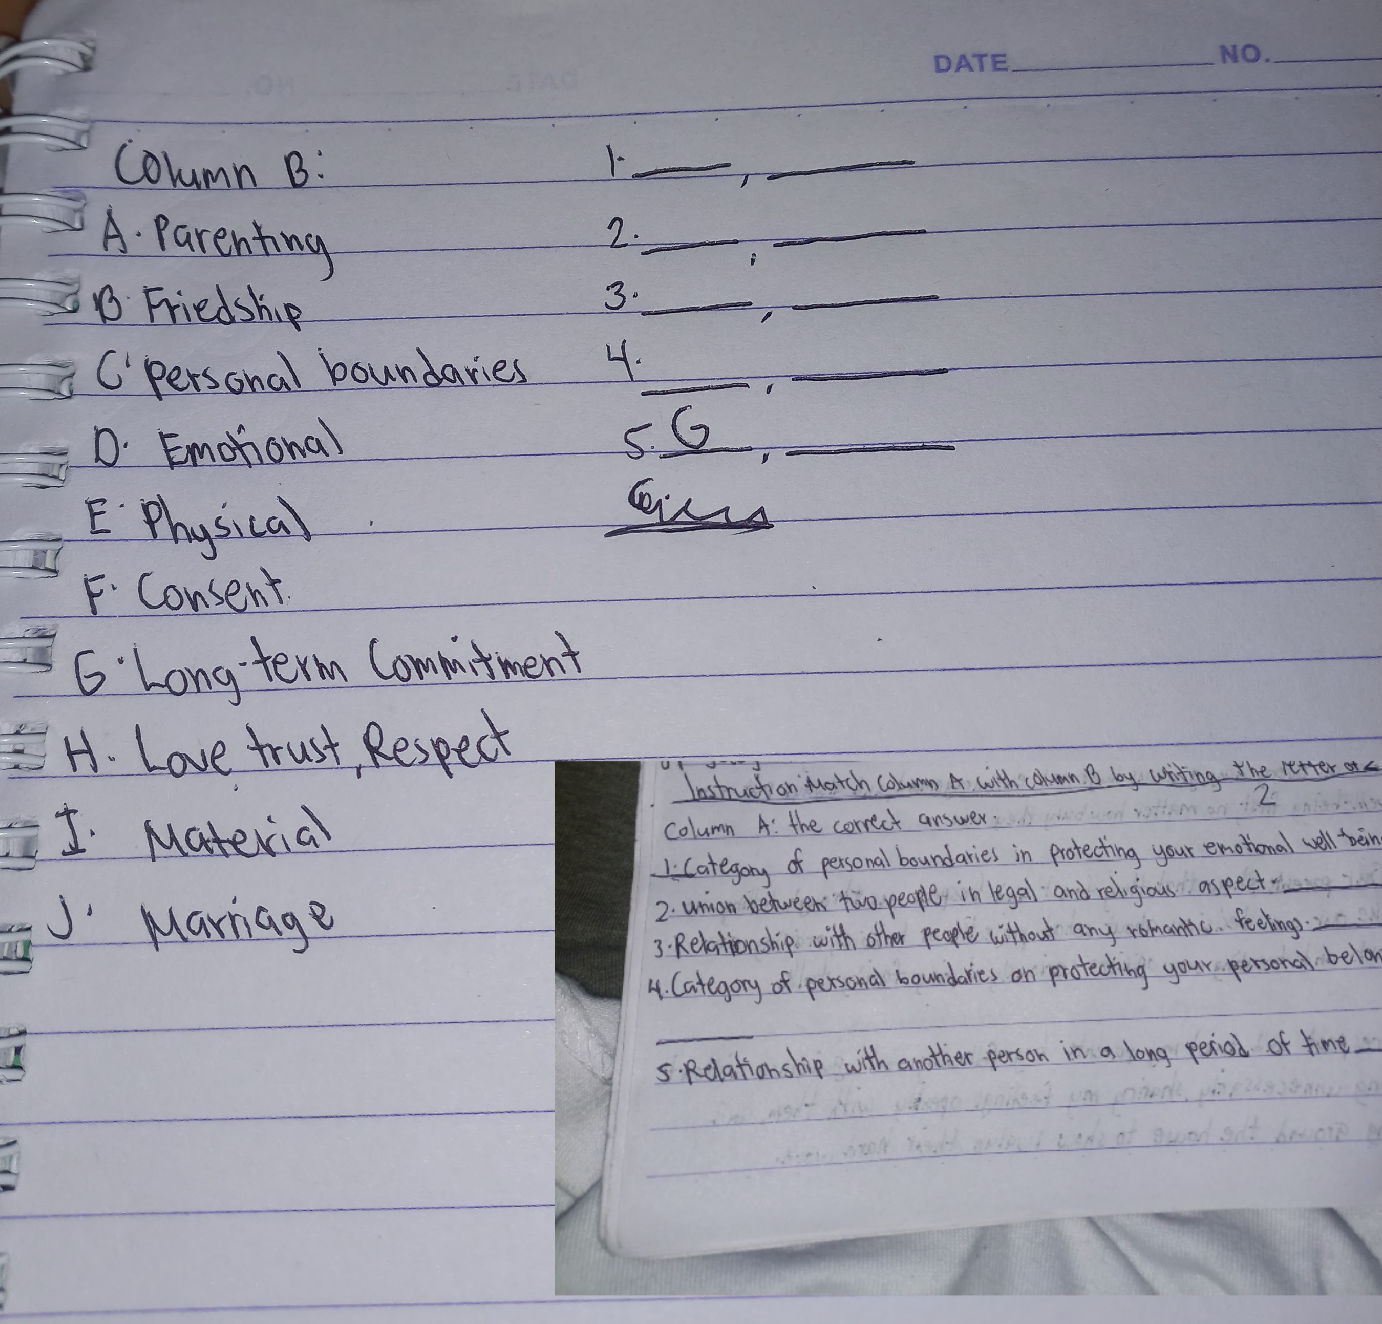 DATE NO.
Column B:
A. Parenting
B. Friedship
C. Personal boundaries
D. Emotional
E. Physical
F. Consent.
G. Long-term Commitment
H. Love trust, Respect
I. Material
J. Marriage
1.
2.
3.
4.
5. G
Instruction: Match Column A with column B by writing the letter of
2
Column A: the correct answer.
1. Category of personal boundaries in protecting your emotional well bein
2. union between two people in legal and religious aspect.
3. Relationship with other people without any romantic feelings.
4. Category of personal boundaries on protecting your personal belon
5. Relationship with another person in a long period of time